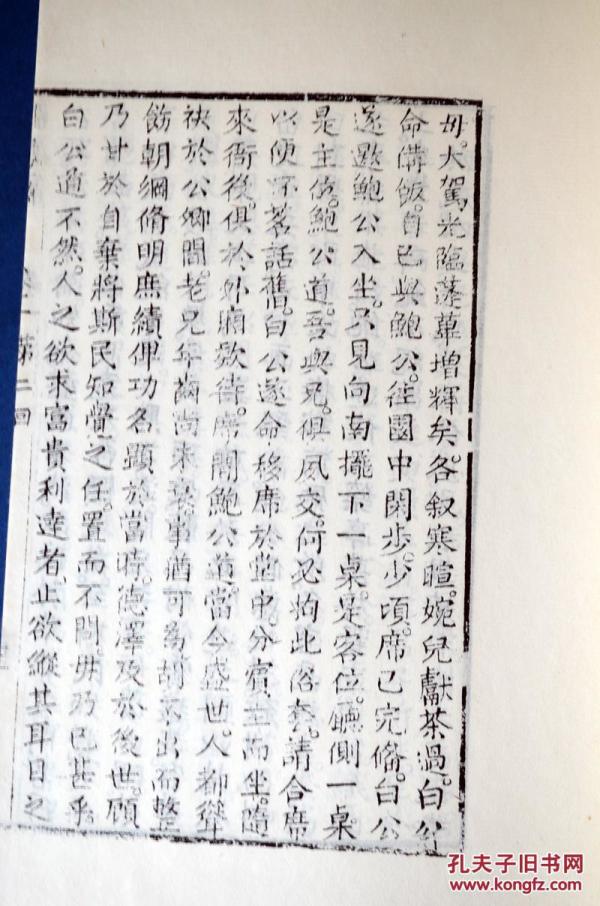 毋。大駕光臨蓬蓽增輝矣。各叙寒暄。婉兒獻茶過。白公
命俻飯。自已與鮑公。往園中閑步。少頃。席已完俻。白公
遂邀鮑公入坐。只見向南擺下一桌。是客位。聽側一桌。
是主位。鮑公道。吾與兄。俱夙交。何必拘此俗套。請合席
以便
茗話舊。白公遂命移席於堂中。分賓主而坐。隨
來衙後。俱於外廂欵待。席間鮑公道。當今盛世。人都聯
袂於公卿間。老兄年齒尚未衰。事猶可為。胡不出而整
飭朝綱。脩明庶績。俾功名顯於當時。德澤及於後世。顧
乃甘於自棄。將斯民知覺之任。置而不問。毋乃已甚乎。
白公道不然。人之欲求富貴利達者。止欲縱其耳目之
第二回
孔夫子旧书网
www.kongfz.com